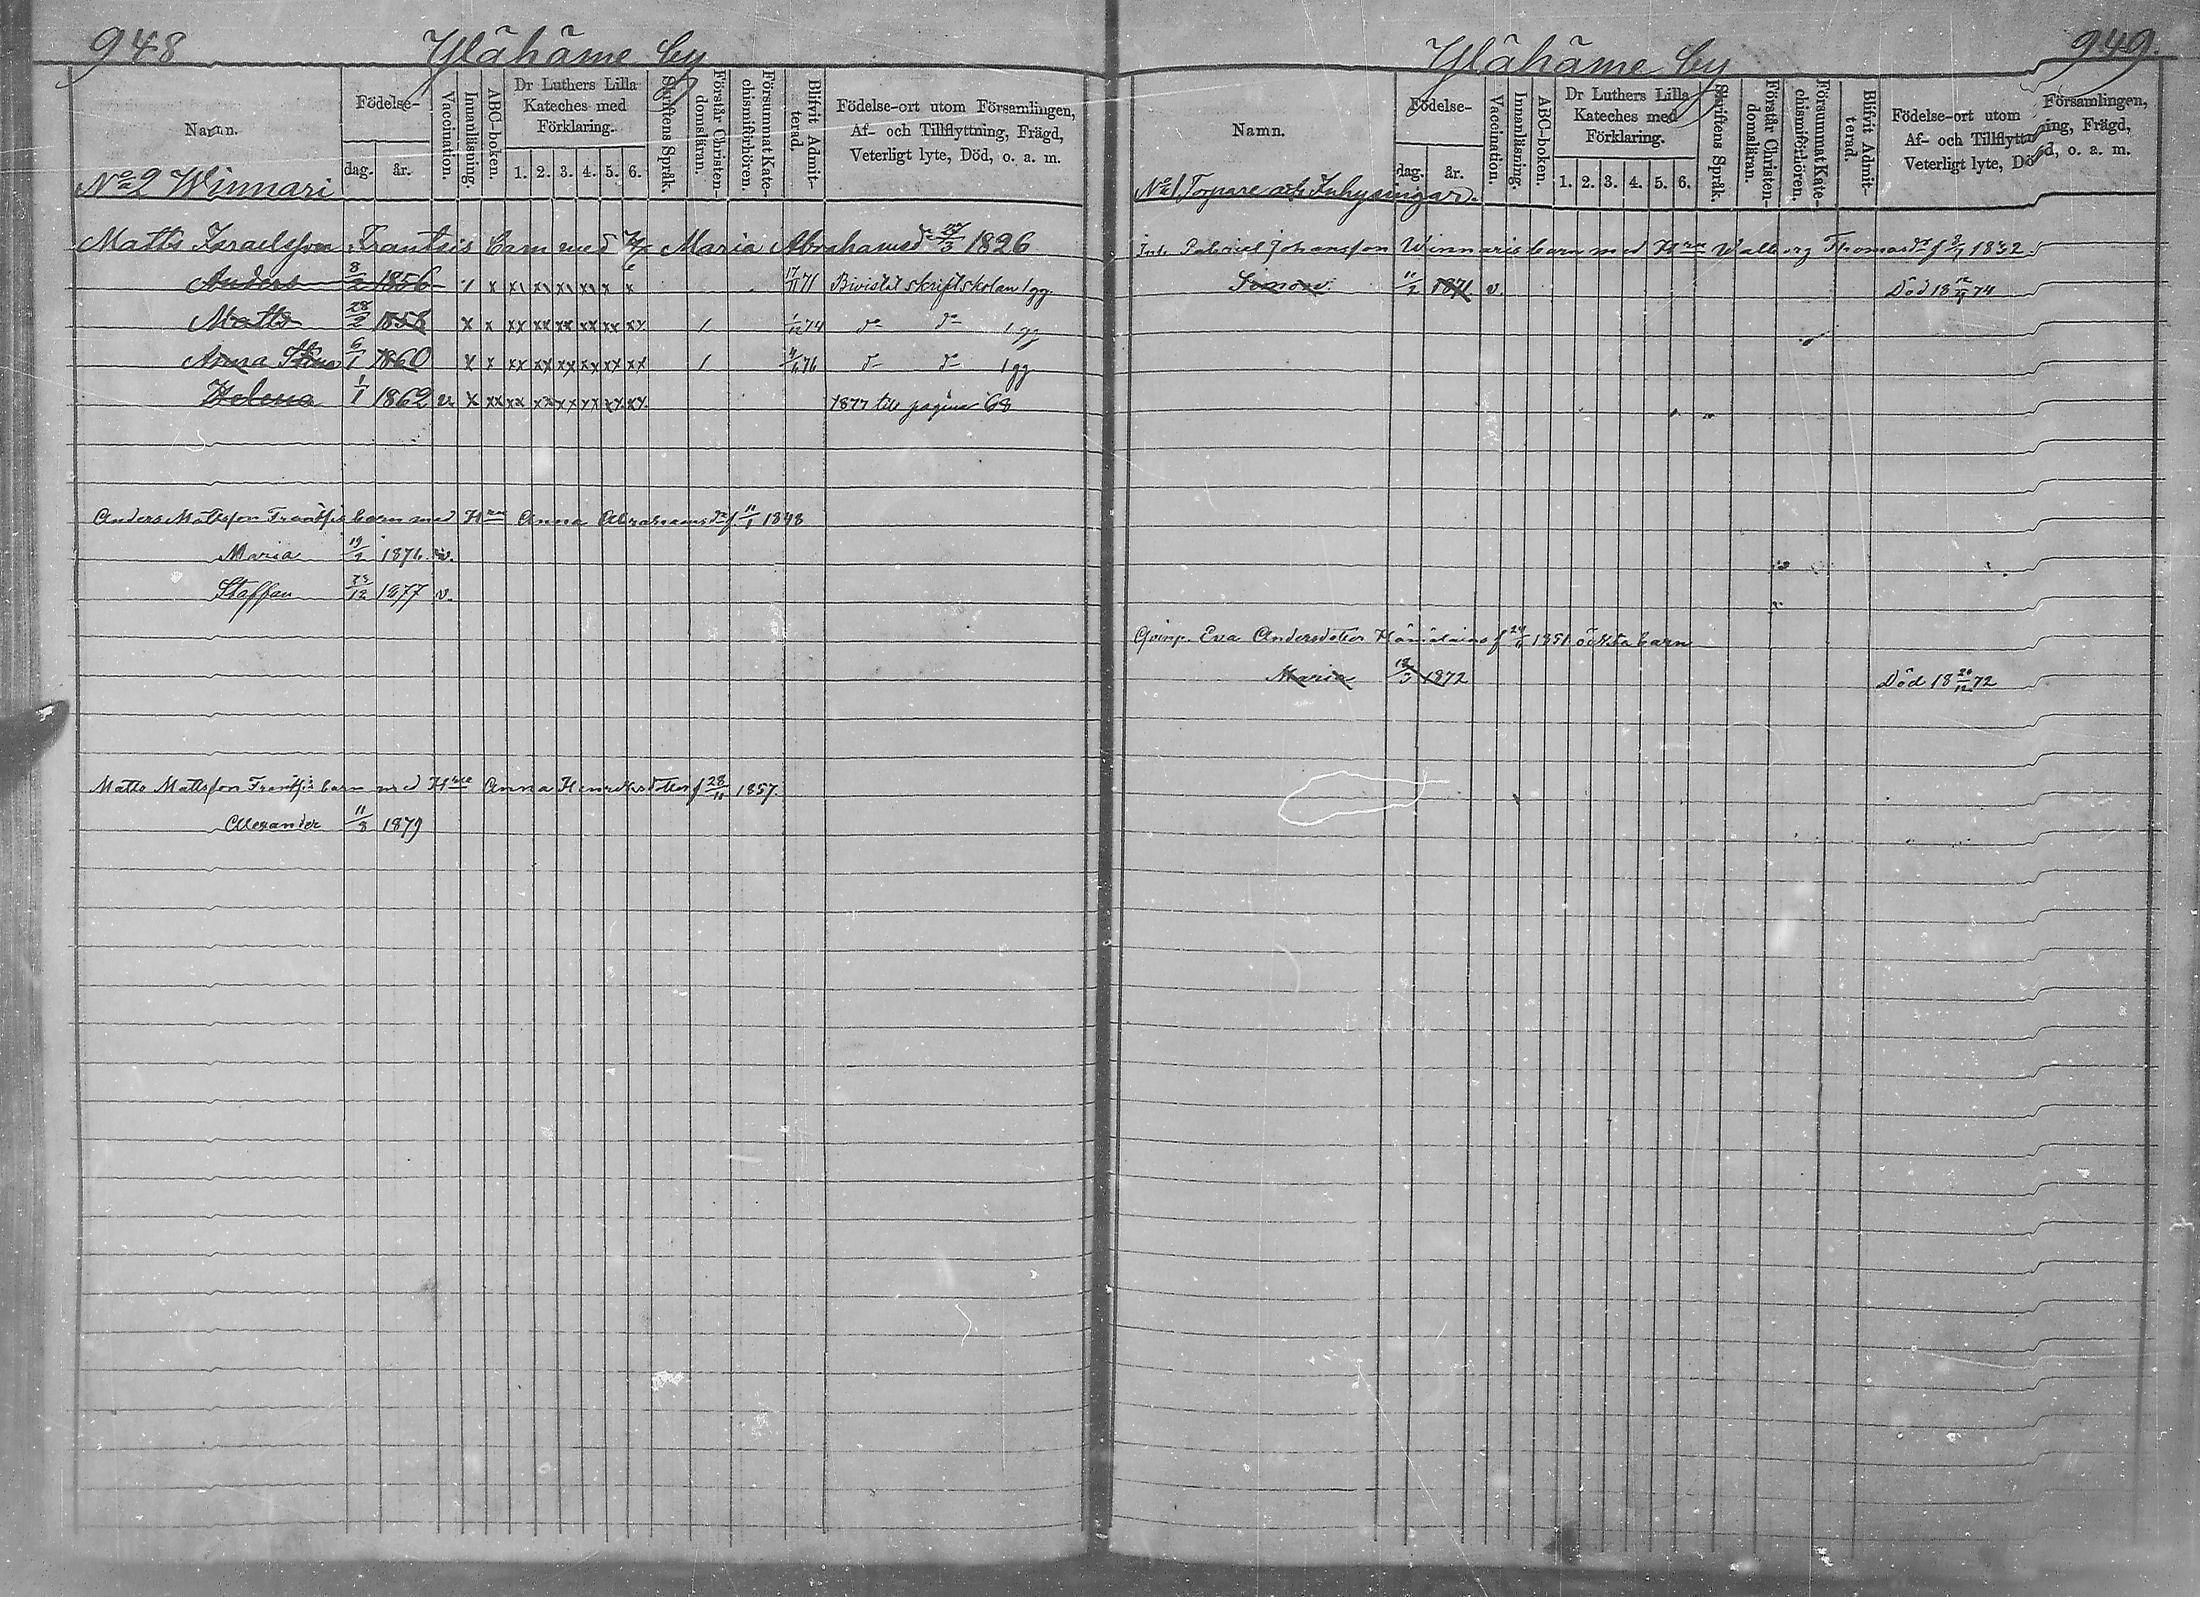 948 Ylähäme by
Namn. Födelse- dag. år. Vaccination. Innanläsning. ABC-boken. Dr Luthers Lilla Kateches med Förklaring. 1. 2. 3. 4. 5. 6. Skriftens Språk. Förstår Christen-domsläran. Försummat Kate-chismiförhören. Blifvit Admit-terad. Födelse-ort utom Församlingen, Af- och Tillflyttning, Frägd, Veterligt lyte, Död, o. a. m.
No 2 Winnari
Matts Israelsson Frantsis barn med H. Maria Abrahamsdr 1826
Anders 8/2 1856 1 x xx xx xx xx x x 17/11 71 Bivistat skriftskolan 1 gg.
Matts 28/2 1858 x x xx xx xx xx xx xx 1 1/12 74 do do 1 gg
Anna 6/1 1860 x x xx xx xx xx xx xx 1 76 do do 1 gg
Helena 1/1 1862 v. x xx xx xx xx xx xx xx. 1877 till pagina 68
Anders Mattsson Frantsis barn med Hru Anna Abrahamsdr f 11/1 1848
Maria 19/2 1876 v.
Staffan 25/12 1877 v.
Matts Mattsson Frantsis barn med Hru Anna Henriksdotter f 28/11 1857.
Alexander 11/3 1879
Ylähäme by 949.
Namn. Födelse- dag. år. Vaccination. Innanläsning. ABC-boken. Dr Luthers Lilla Kateches med Förklaring. 1. 2. 3. 4. 5. 6. Skriftens Språk. Förstår Christen-domsläran. Försummat Kate-chismiförhören. Blifvit Admit-terad. Födelse-ort utom Församlingen, Af- och Tillflyttning, Frägd, Veterligt lyte, Död, o. a. m.
No 1 Torpare och Inhysingar.
Inh. Gabriel Johansson Winnaris barn med Hru Walborg Thomasdr f 1832
Simon 11/2 1871 v. Död 18 74
Qvinp. Eva Andersdotter f 1851 oäkta barn
Maria 18/3 1872 Död 18 20/12 72